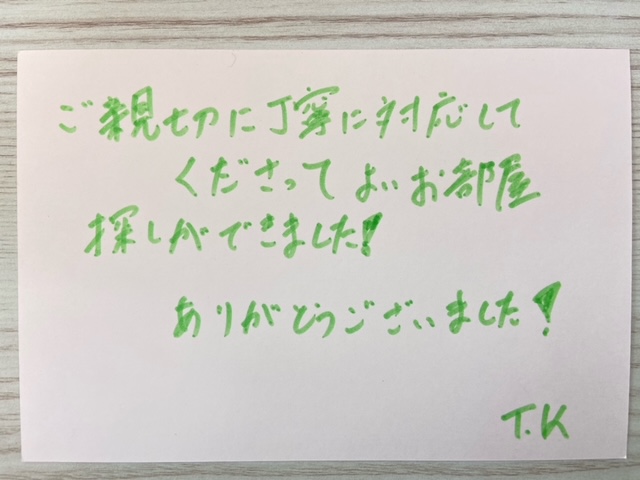 ご親切に丁寧に対応して
くださってよいお部屋
探しができました!
ありがとうございました!
T.K